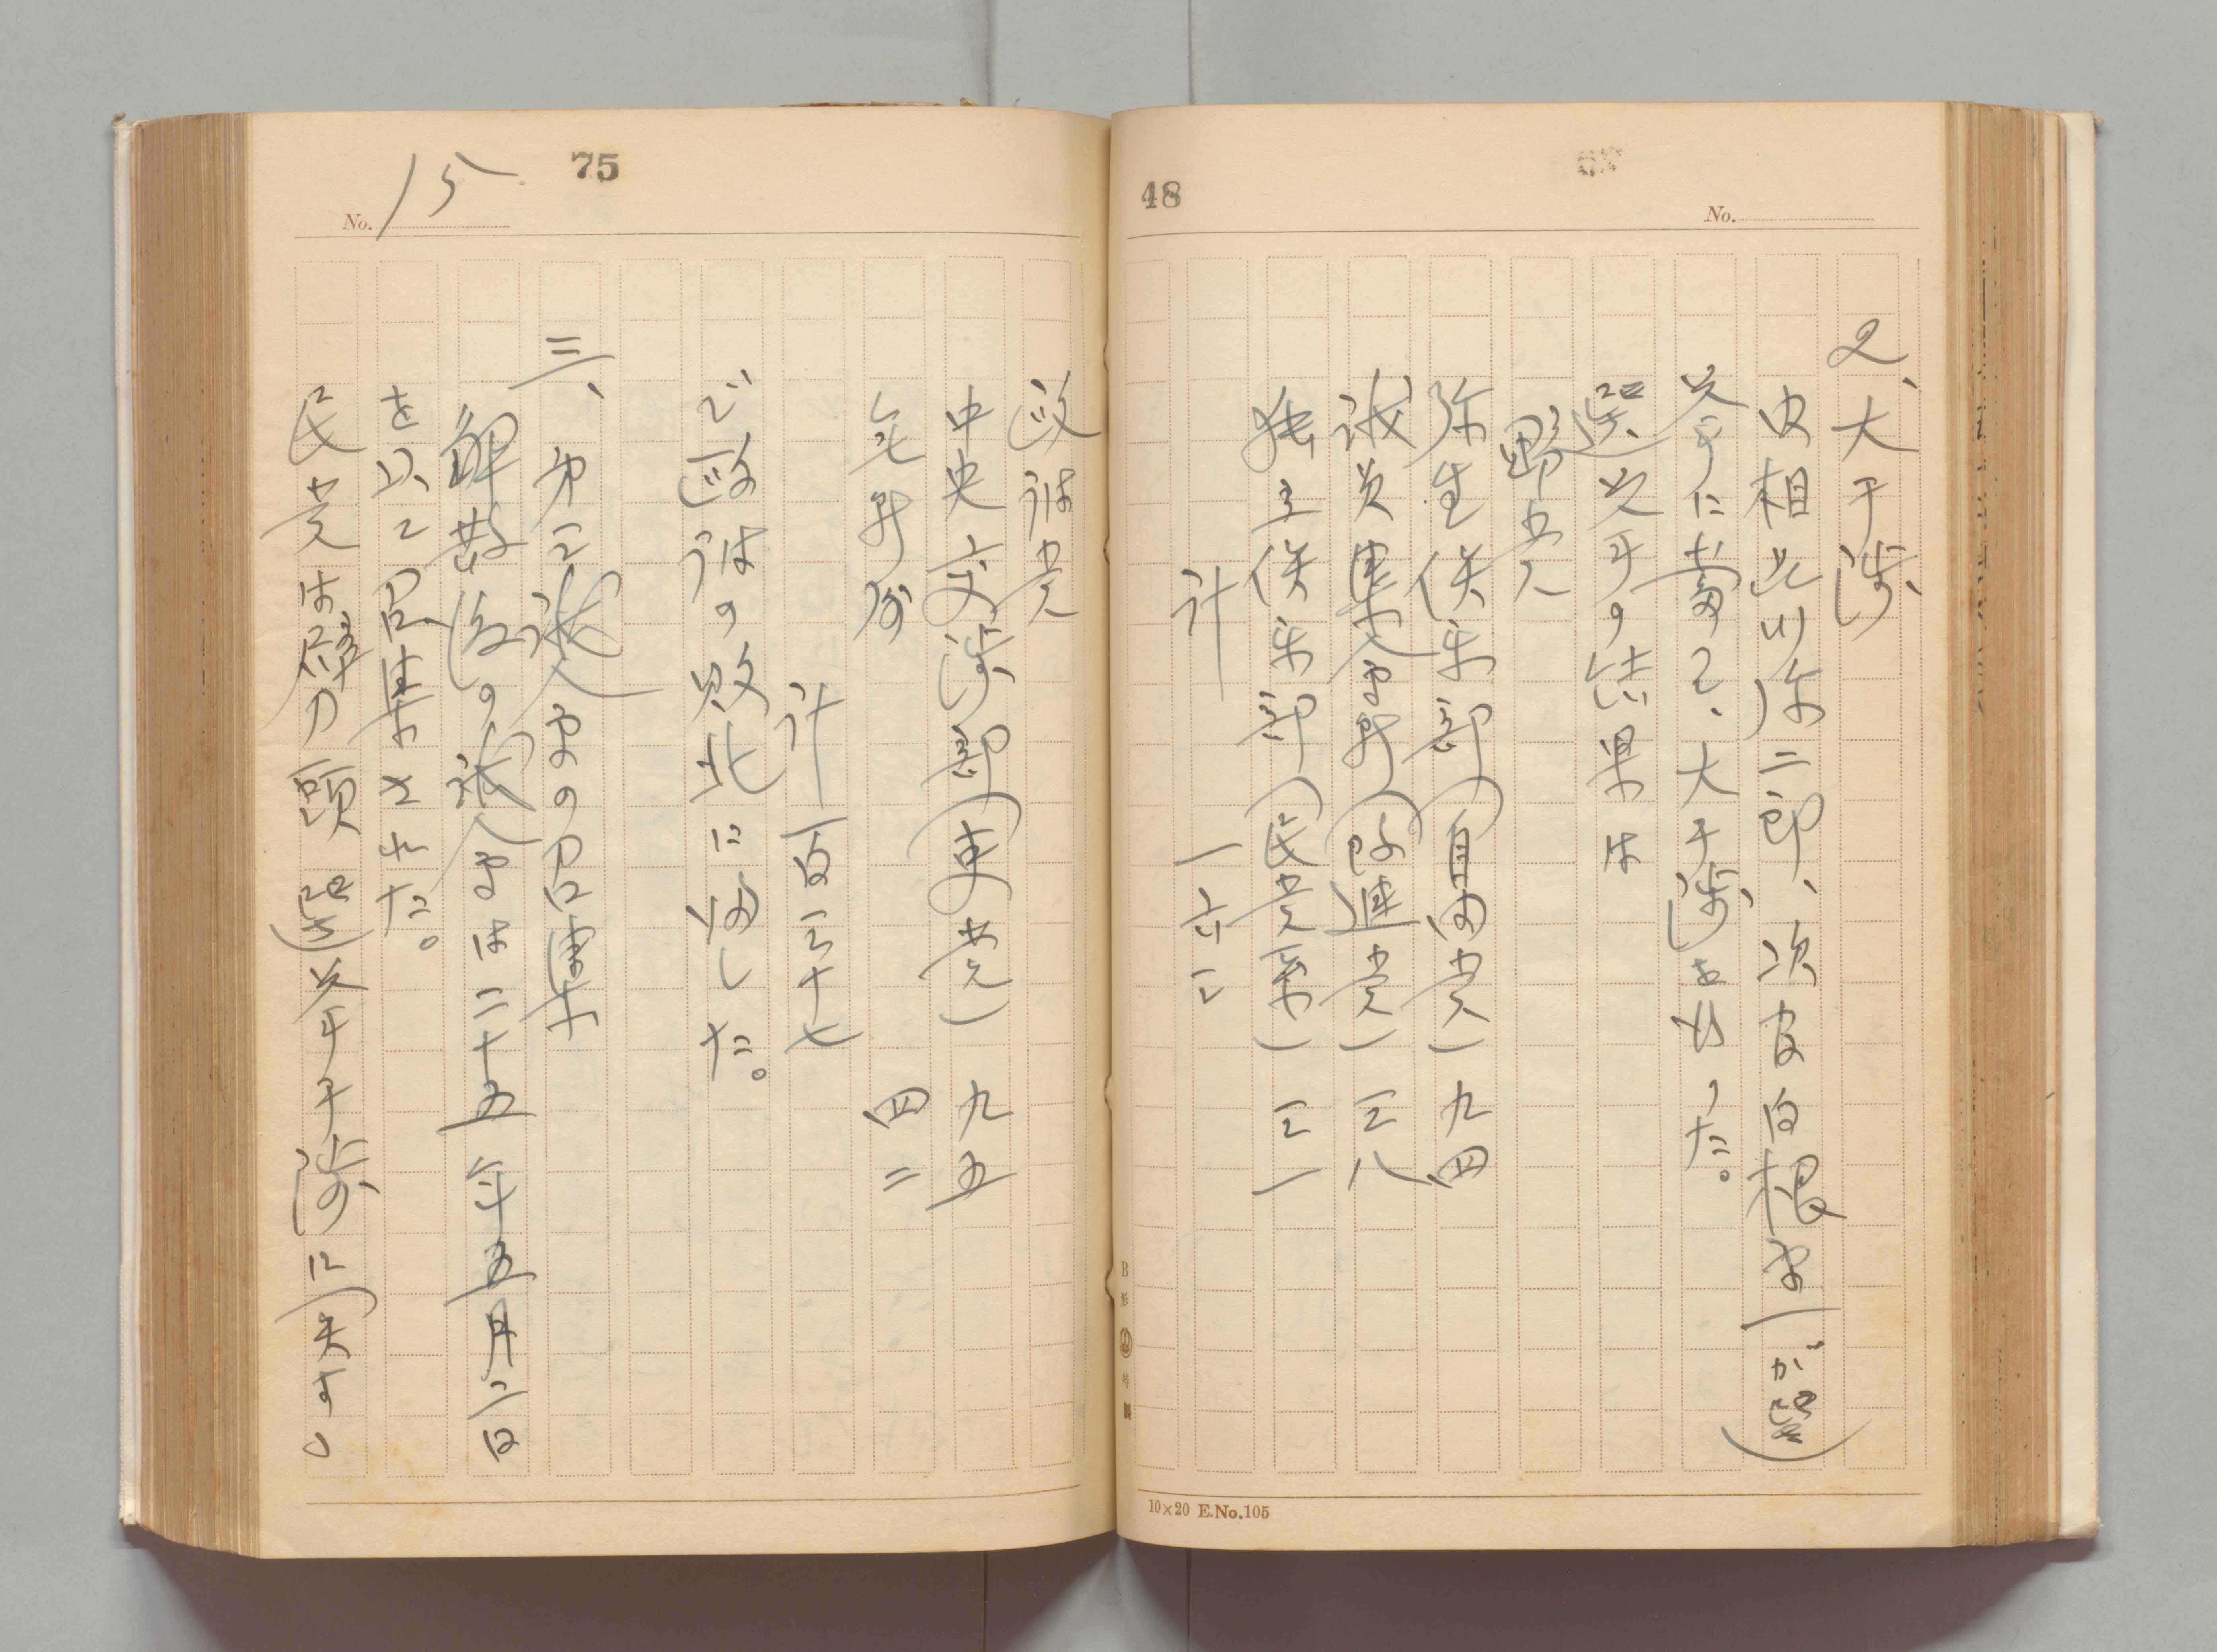 48
No.
2、大干渉
内相品川弥二郎、次官白根専一が選
挙に当って、大干渉を行った。
選挙の結果は
野党
弥生倶楽部(自由党) 九四
議員集会所(改進党) 三八
独立倶楽部(民党系) 三一
計 一六三
B形 特製
10×20 E.No.105
75
No. 15
政府党
中央交渉部(吏党) 九五
無所属 四二
計 一百三十七
で政府の敗北に帰した。
三、第三議会の召集
解散後の議会は二十五年五月二日
を以て召集された。
民党は劈頭選挙干渉に関する